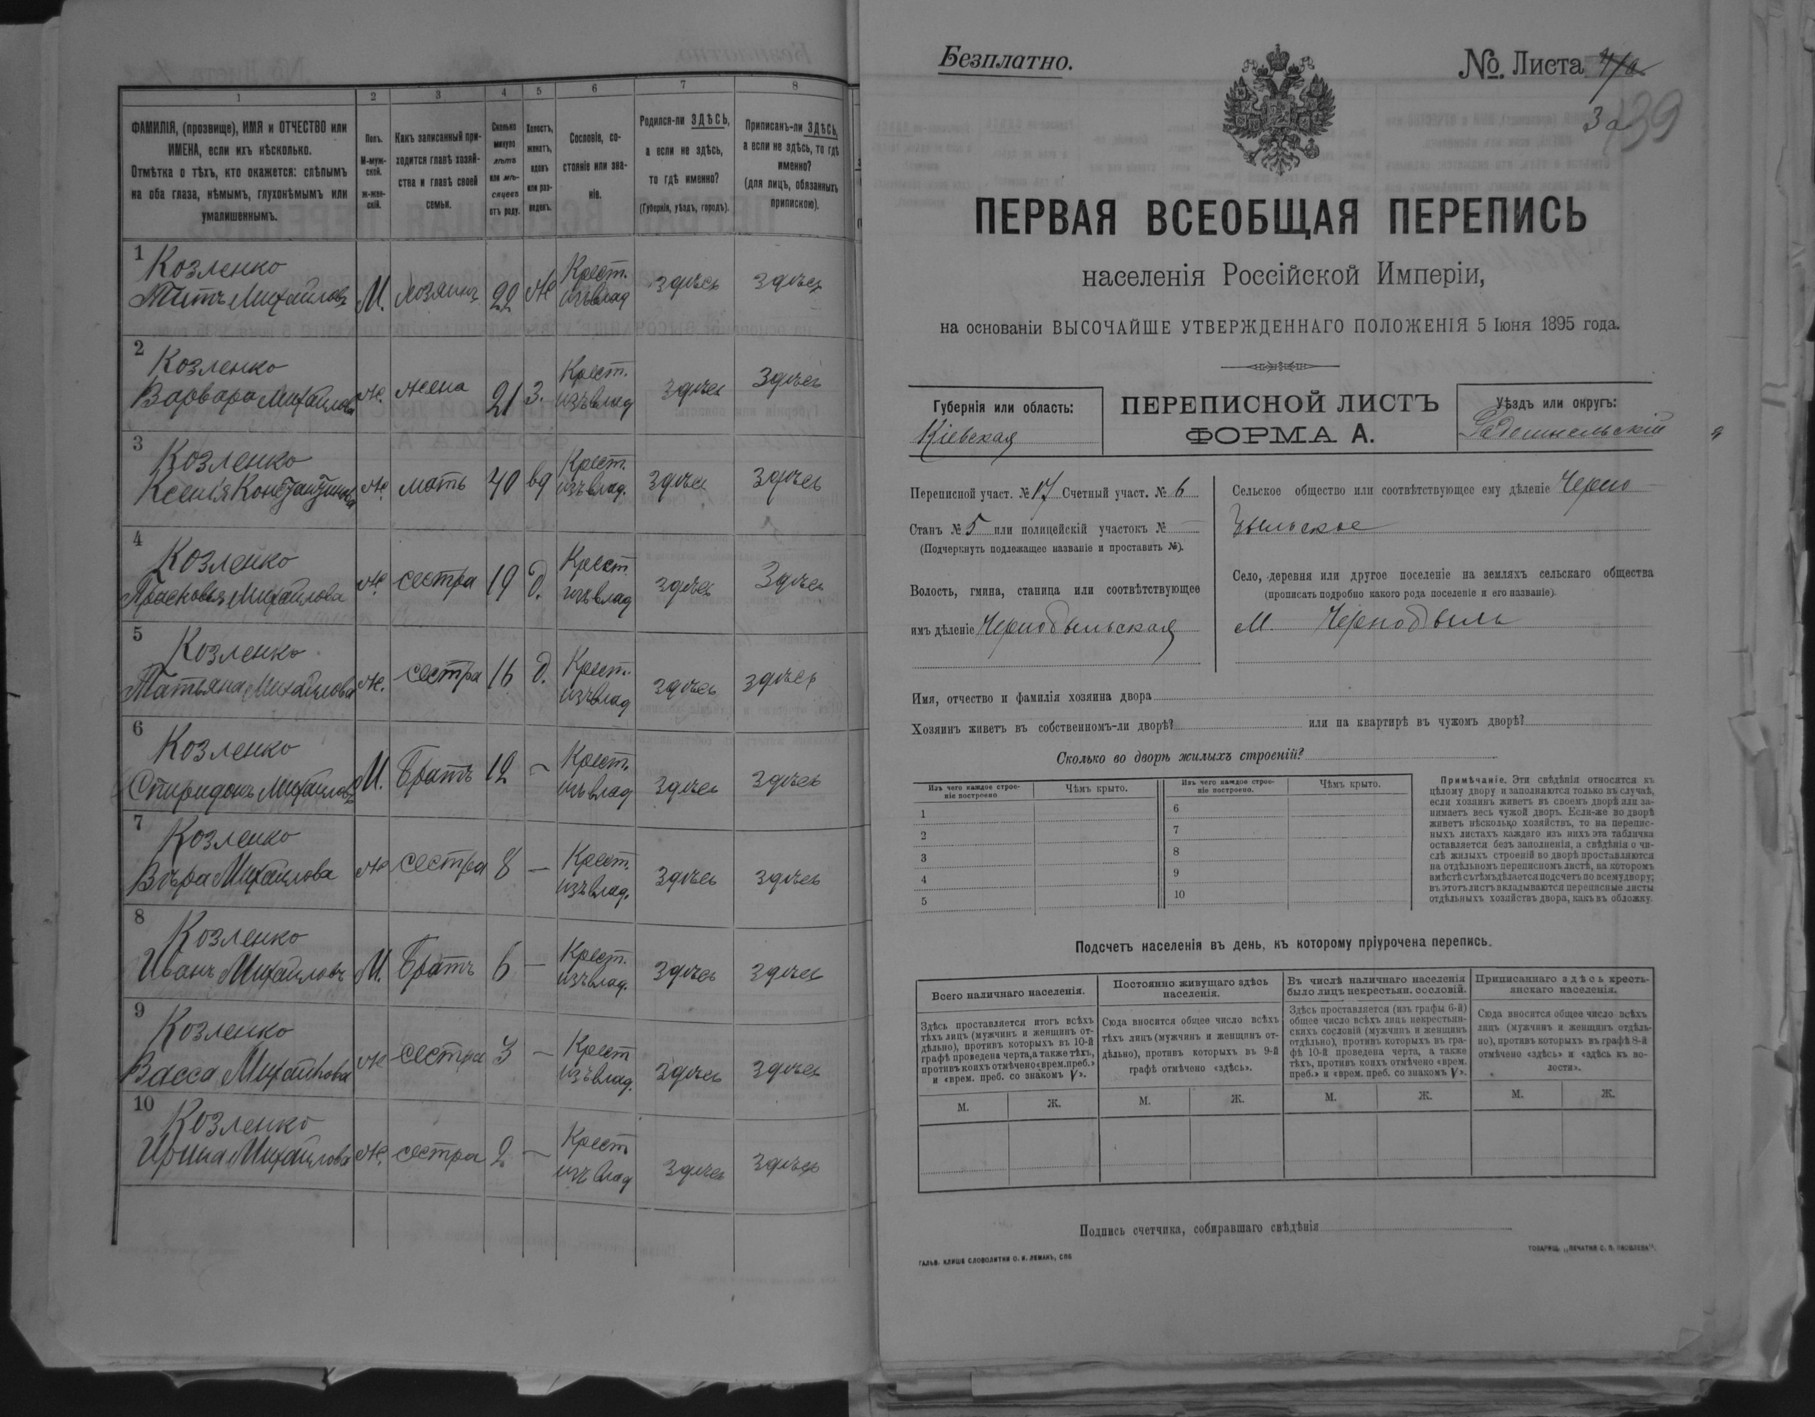 1 2 3 4 5 6 7 8
ФАМИЛІЯ, (прозвище), ИМЯ и ОТЧЕСТВО или
ИМЕНА, если ихъ нѣсколько.
Отмѣтка о тѣхъ, кто окажется: слѣпымъ
на оба глаза, нѣмымъ, глухонѣмымъ или
умалишеннымъ.
Полъ.
М-муж-
ской.
ж-жен-
скій.
Какъ записанный при-
ходится главѣ хозяй-
ства и главѣ своей
семьи.
Сколько
минуло
лѣтъ
или мѣ-
сяцевъ
отъ роду.
Холостъ,
женатъ,
вдовъ
или раз-
веденъ.
Сословіе, со-
стояніе или зва-
ніе.
Родился-ли ЗДѢСЬ,
а если не здѣсь,
то гдѣ именно?
(Губернія, уѣздъ, городъ).
Приписанъ-ли ЗДѢСЬ,
а если не здѣсь, то гдѣ
именно?
(для лицъ, обязанныхъ
припискою).
1 Козленко
Титъ Михайловъ М. хозяинъ 22 ж Крест. изъ влад здѣсь здѣсь
2 Козленко
Варвара Михайлова ж. жена 21 з. Крест. изъ влад здѣсь здѣсь
3 Козленко
Ксенія Константинова ж. мать 40 вд Крест. изъ влад. здѣсь здѣсь
4 Козленко
Прасковья Михайлова ж. сестра 19 д. Крест. изъ влад здѣсь здѣсь
5 Козленко
Татьяна Михайлова ж. сестра 16 д. Крест. изъ влад здѣсь здѣсь
6 Козленко
Спиридонъ Михайловъ М. Братъ 12 – Крест. изъ влад здѣсь здѣсь
7 Козленко
Вѣра Михайлова ж сестра 8 – Крест. изъ влад. здѣсь здѣсь
8 Козленко
Иванъ Михайловъ М. Братъ 6 – Крест. изъ влад. здѣсь здѣсь
9 Козленко
Васса Михайлова ж сестра 3 – Крест изъ влад. здѣсь здѣсь
10 Козленко
Ирина Михайлова ж. сестра 2 – Крест изъ влад здѣсь здѣсь
Безплатно.
№. Листа 4/а
3 а
39
ПЕРВАЯ ВСЕОБЩАЯ ПЕРЕПИСЬ
населенія Россійской Имперіи,
на основаніи ВЫСОЧАЙШЕ УТВЕРЖДЕННАГО ПОЛОЖЕНІЯ 5 Іюня 1895 года.
Губернія или область:
Кіевская
ПЕРЕПИСНОЙ ЛИСТЪ
ФОРМА А.
Уѣздъ или округъ:
Радомысльскій
Переписной участ. № 17 Счетный участ. № 6
Станъ № 5 или полицейскій участокъ № –
(Подчеркнуть подлежащее названіе и проставить №).
Волость, гмина, станица или соотвѣтствующее
имъ дѣленіе Чернобыльская
Сельское общество или соотвѣтствующее ему дѣленіе Черно
быльское
Село, деревня или другое поселеніе на земляхъ сельскаго общества
(прописать подробно какого рода поселеніе и его названіе).
М. Чернобыль
Имя, отчество и фамилія хозяина двора
Хозяинъ живетъ въ собственномъ-ли дворѣ? или на квартирѣ въ чужомъ дворѣ?
Сколько во дворѣ жилыхъ строеній?
Изъ чего каждое строе-
ніе построено
Чѣмъ крыто.
Изъ чего каждое строе-
ніе построено.
Чѣмъ крыто.
1 6
2 7
3 8
4 9
5 10
Примѣчаніе. Эти свѣдѣнія относятся къ
цѣлому двору и заполняются только въ случаѣ,
если хозяинъ живетъ въ своемъ дворѣ или за-
нимаетъ весь чужой дворъ. Если-же во дворѣ
живетъ нѣсколько хозяйствъ, то на перепис-
ныхъ листахъ каждаго изъ нихъ эта табличка
оставляется безъ заполненія, а свѣдѣнія о чи-
слѣ жилыхъ строеній во дворѣ проставляются
на отдѣльномъ переписномъ листѣ, на которомъ
вмѣстѣ съ тѣмъ дѣлается подсчетъ по всему двору;
въ этотъ листъ вкладываются переписные листы
отдѣльныхъ хозяйствъ двора, какъ въ обложку.
Подсчетъ населенія въ день, къ которому пріурочена перепись.
Всего наличнаго населенія.
Постоянно живущаго здѣсь
населенія.
Въ числѣ наличнаго населенія
было лицъ некрестьян. сословій.
Приписаннаго здѣсь кресть-
янскаго населенія.
Здѣсь проставляется итогъ всѣхъ
тѣхъ лицъ (мужчинъ и женщинъ от-
дѣльно), противъ которыхъ въ 10-й
графѣ проведена черта, а также тѣхъ,
противъ коихъ отмѣчено «врем. преб.»
и «врем. преб. со знакомъ V».
Сюда вносится общее число всѣхъ
тѣхъ лицъ (мужчинъ и женщинъ от-
дѣльно), противъ которыхъ въ 9-й
графѣ отмѣчено «здѣсь».
Здѣсь проставляется (изъ графы 6-й)
общее число всѣхъ лицъ некрестьян-
скихъ сословій (мужчинъ и женщинъ
отдѣльно), противъ которыхъ въ гра-
фѣ 10-й проведена черта, а также
тѣхъ, противъ коихъ отмѣчено «врем.
преб.» и «врем. преб. со знакомъ V».
Сюда вносится общее число всѣхъ
лицъ (мужчинъ и женщинъ отдѣль-
но), противъ которыхъ въ графѣ 8-й
отмѣчено «здѣсь» и «здѣсь въ во-
лости».
М. Ж. М. Ж. М. Ж. М. Ж.
Подпись счетчика, собиравшаго свѣдѣнія
ГАЛЬВ. КЛИШЕ СЛОВОЛИТНИ О. И. ЛЕМАНЪ, СПБ
ТОВАРИЩ. „ПЕЧАТНЯ С. П. ЯКОВЛЕВА“.